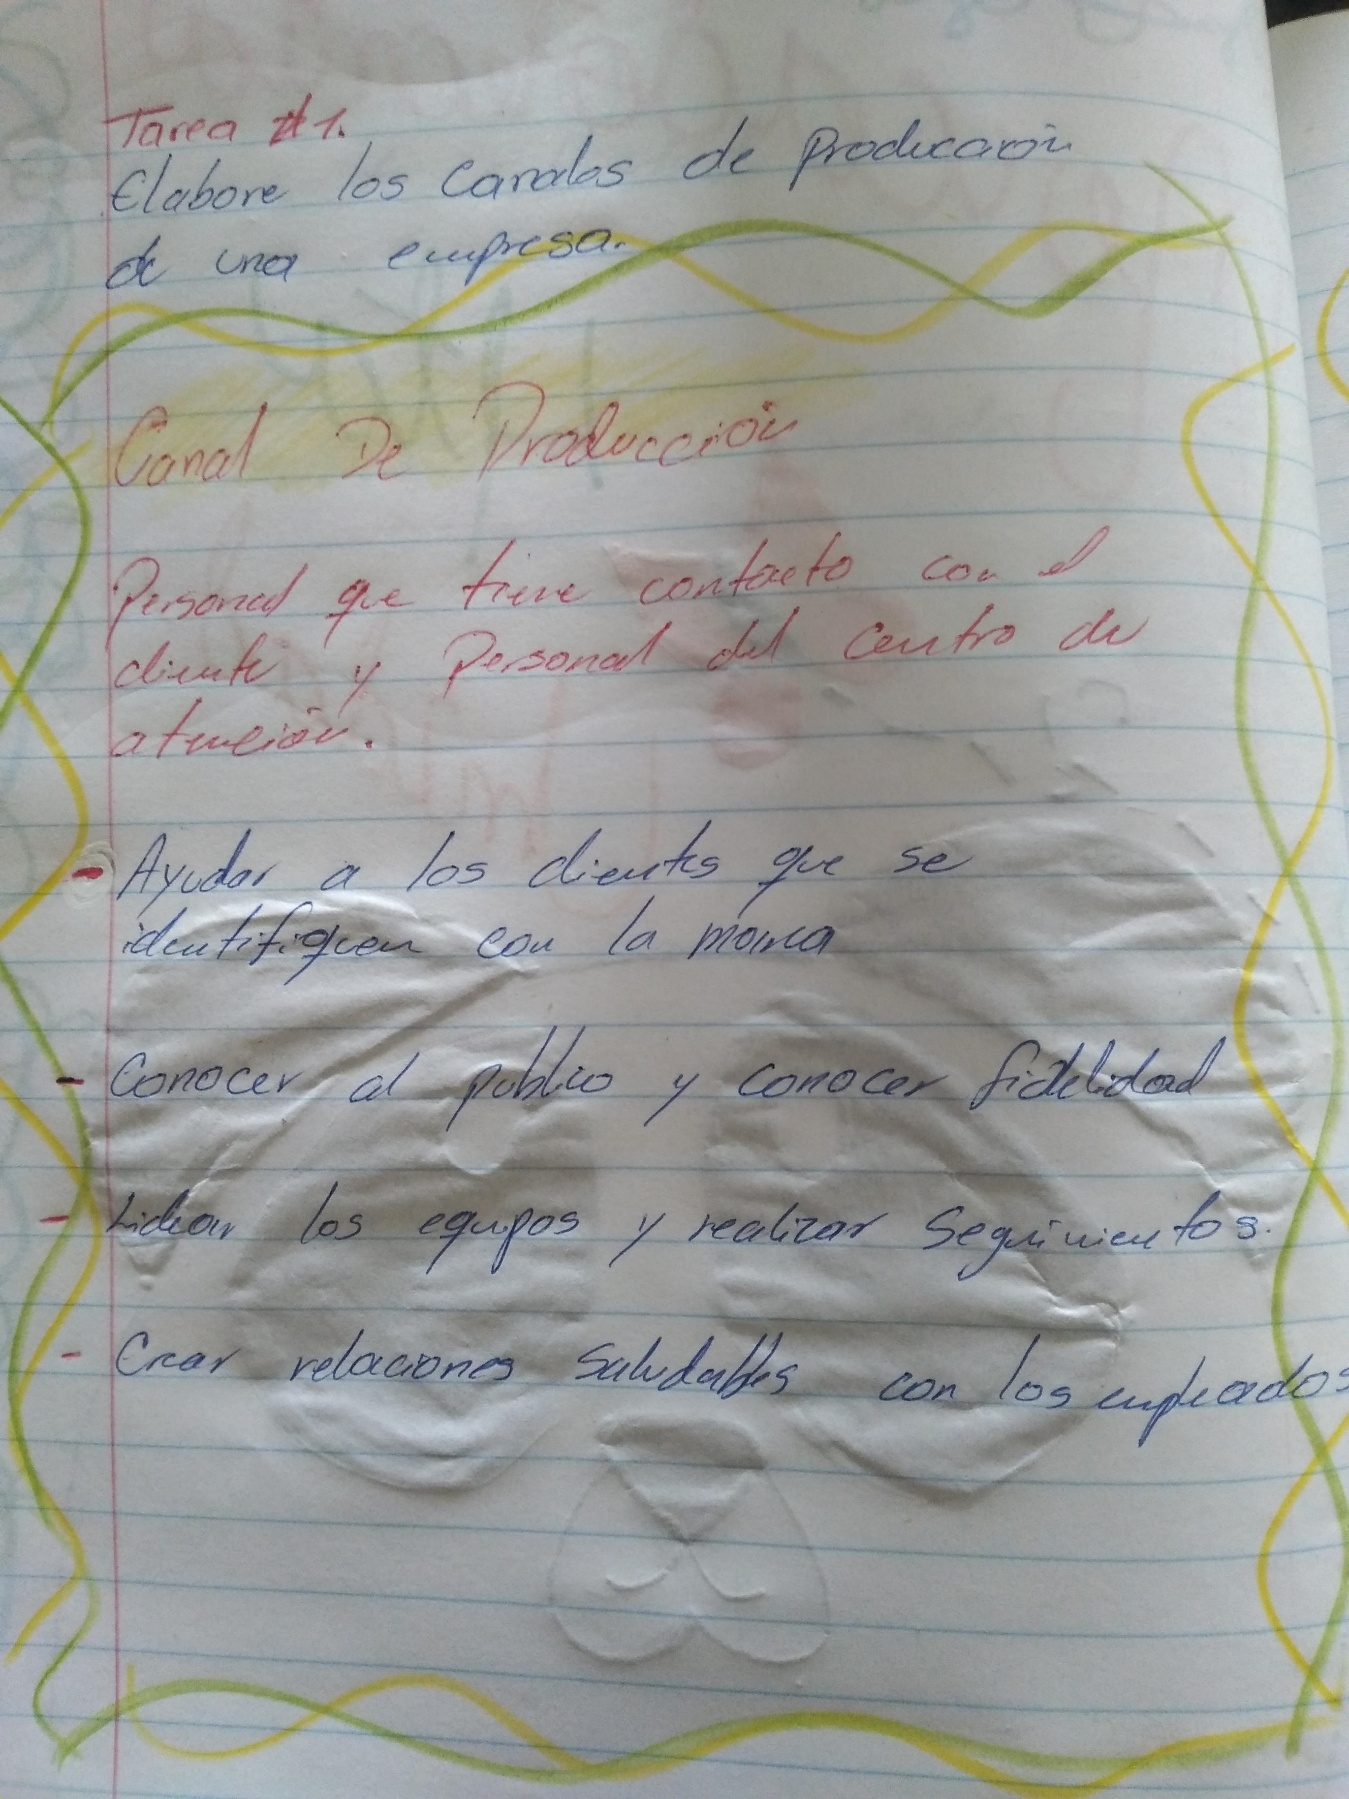 Tarea #1.
Elabore los Canales de Producción
de una empresa.
Canal De Producción
Personal que tiene contacto con el
cliente y Personal del centro de
atención.
- Ayudar a los clientes que se
identifiquen con la marca
- Conocer al publico y conocer fidelidad
- Liderar los equipos y realizar Seguimientos.
- Crear relaciones Saludables con los empleados